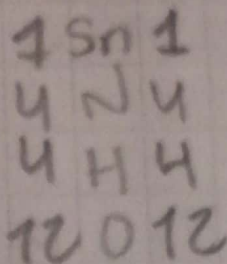 1 Sn 1
4 N 4
4 H 4
12 O 12